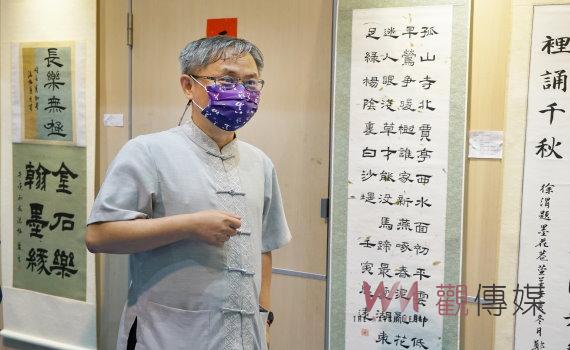 長樂無極
金石樂
翰墨緣
孤山寺北賈亭西水面初平雲腳低
早鶯爭暖樹誰家新燕啄春泥亂花
迷人眼淺草才能沒馬蹄最愛湖東
足綠楊陰裏白沙堤 壬寅
裡誦千秋
徐渭題墨花
觀傳媒